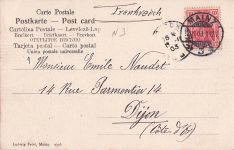 Carte Postale
Postkarte — Post card
Cartolina Postale — Levelező-Lap
Brefkort — Briefkaart — Brevkort
ОТКРЫТОЕ ПИСЬМО
Tarjeta postal — Carta postal
Union postale universelle
Frankreich
MAINZ
Monsieur Emile Naudet
14 Rue Parmentier 14
Dijon
(Côte d'Or)
Ludwig Feist, Mainz.